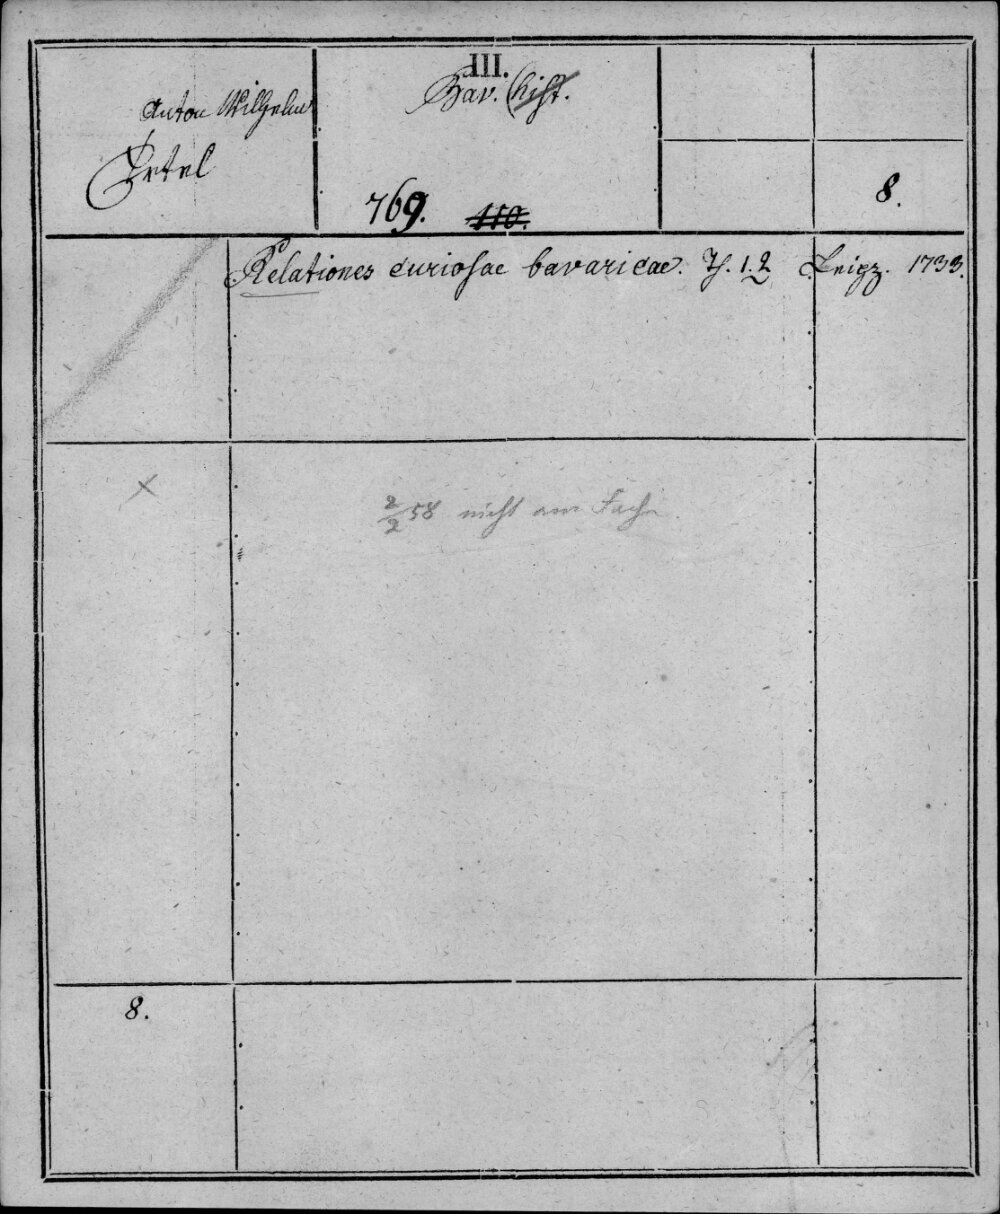 III.
Bav. (hist.
Anton Wilhelm
Ertel
769. 110.
8.
Relationes curiosae bavaricae. Th. 1. 2 Leipz. 1733.
x
2/2 58 nicht am Fache
8.